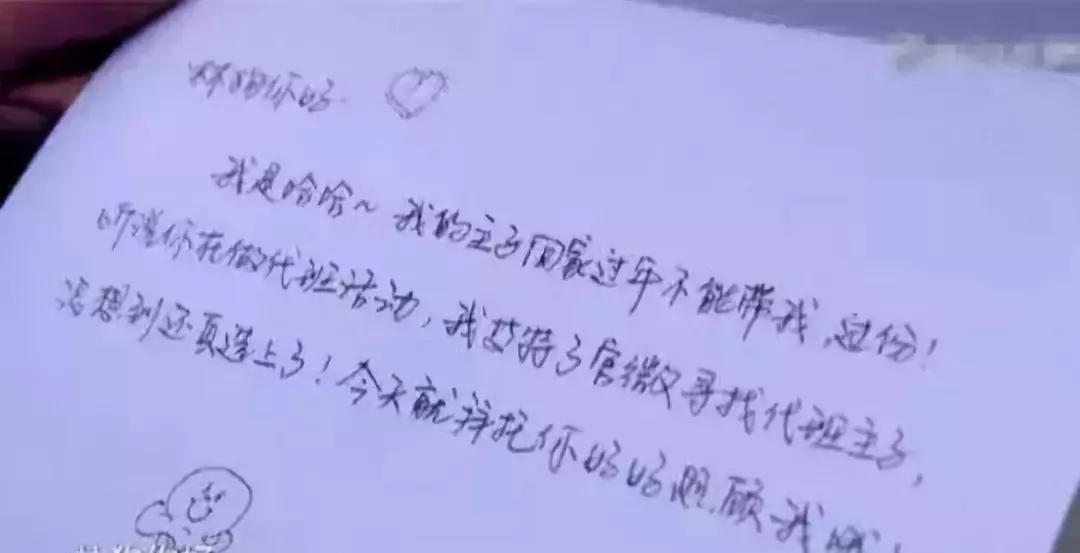 你好
我是哈哈～我的主子回家过年不能带我，过份！
听说你在做代班活动，我艾特了官微寻找代班主子，
没想到还真选上了！今天就拜托你好好照顾我哦！